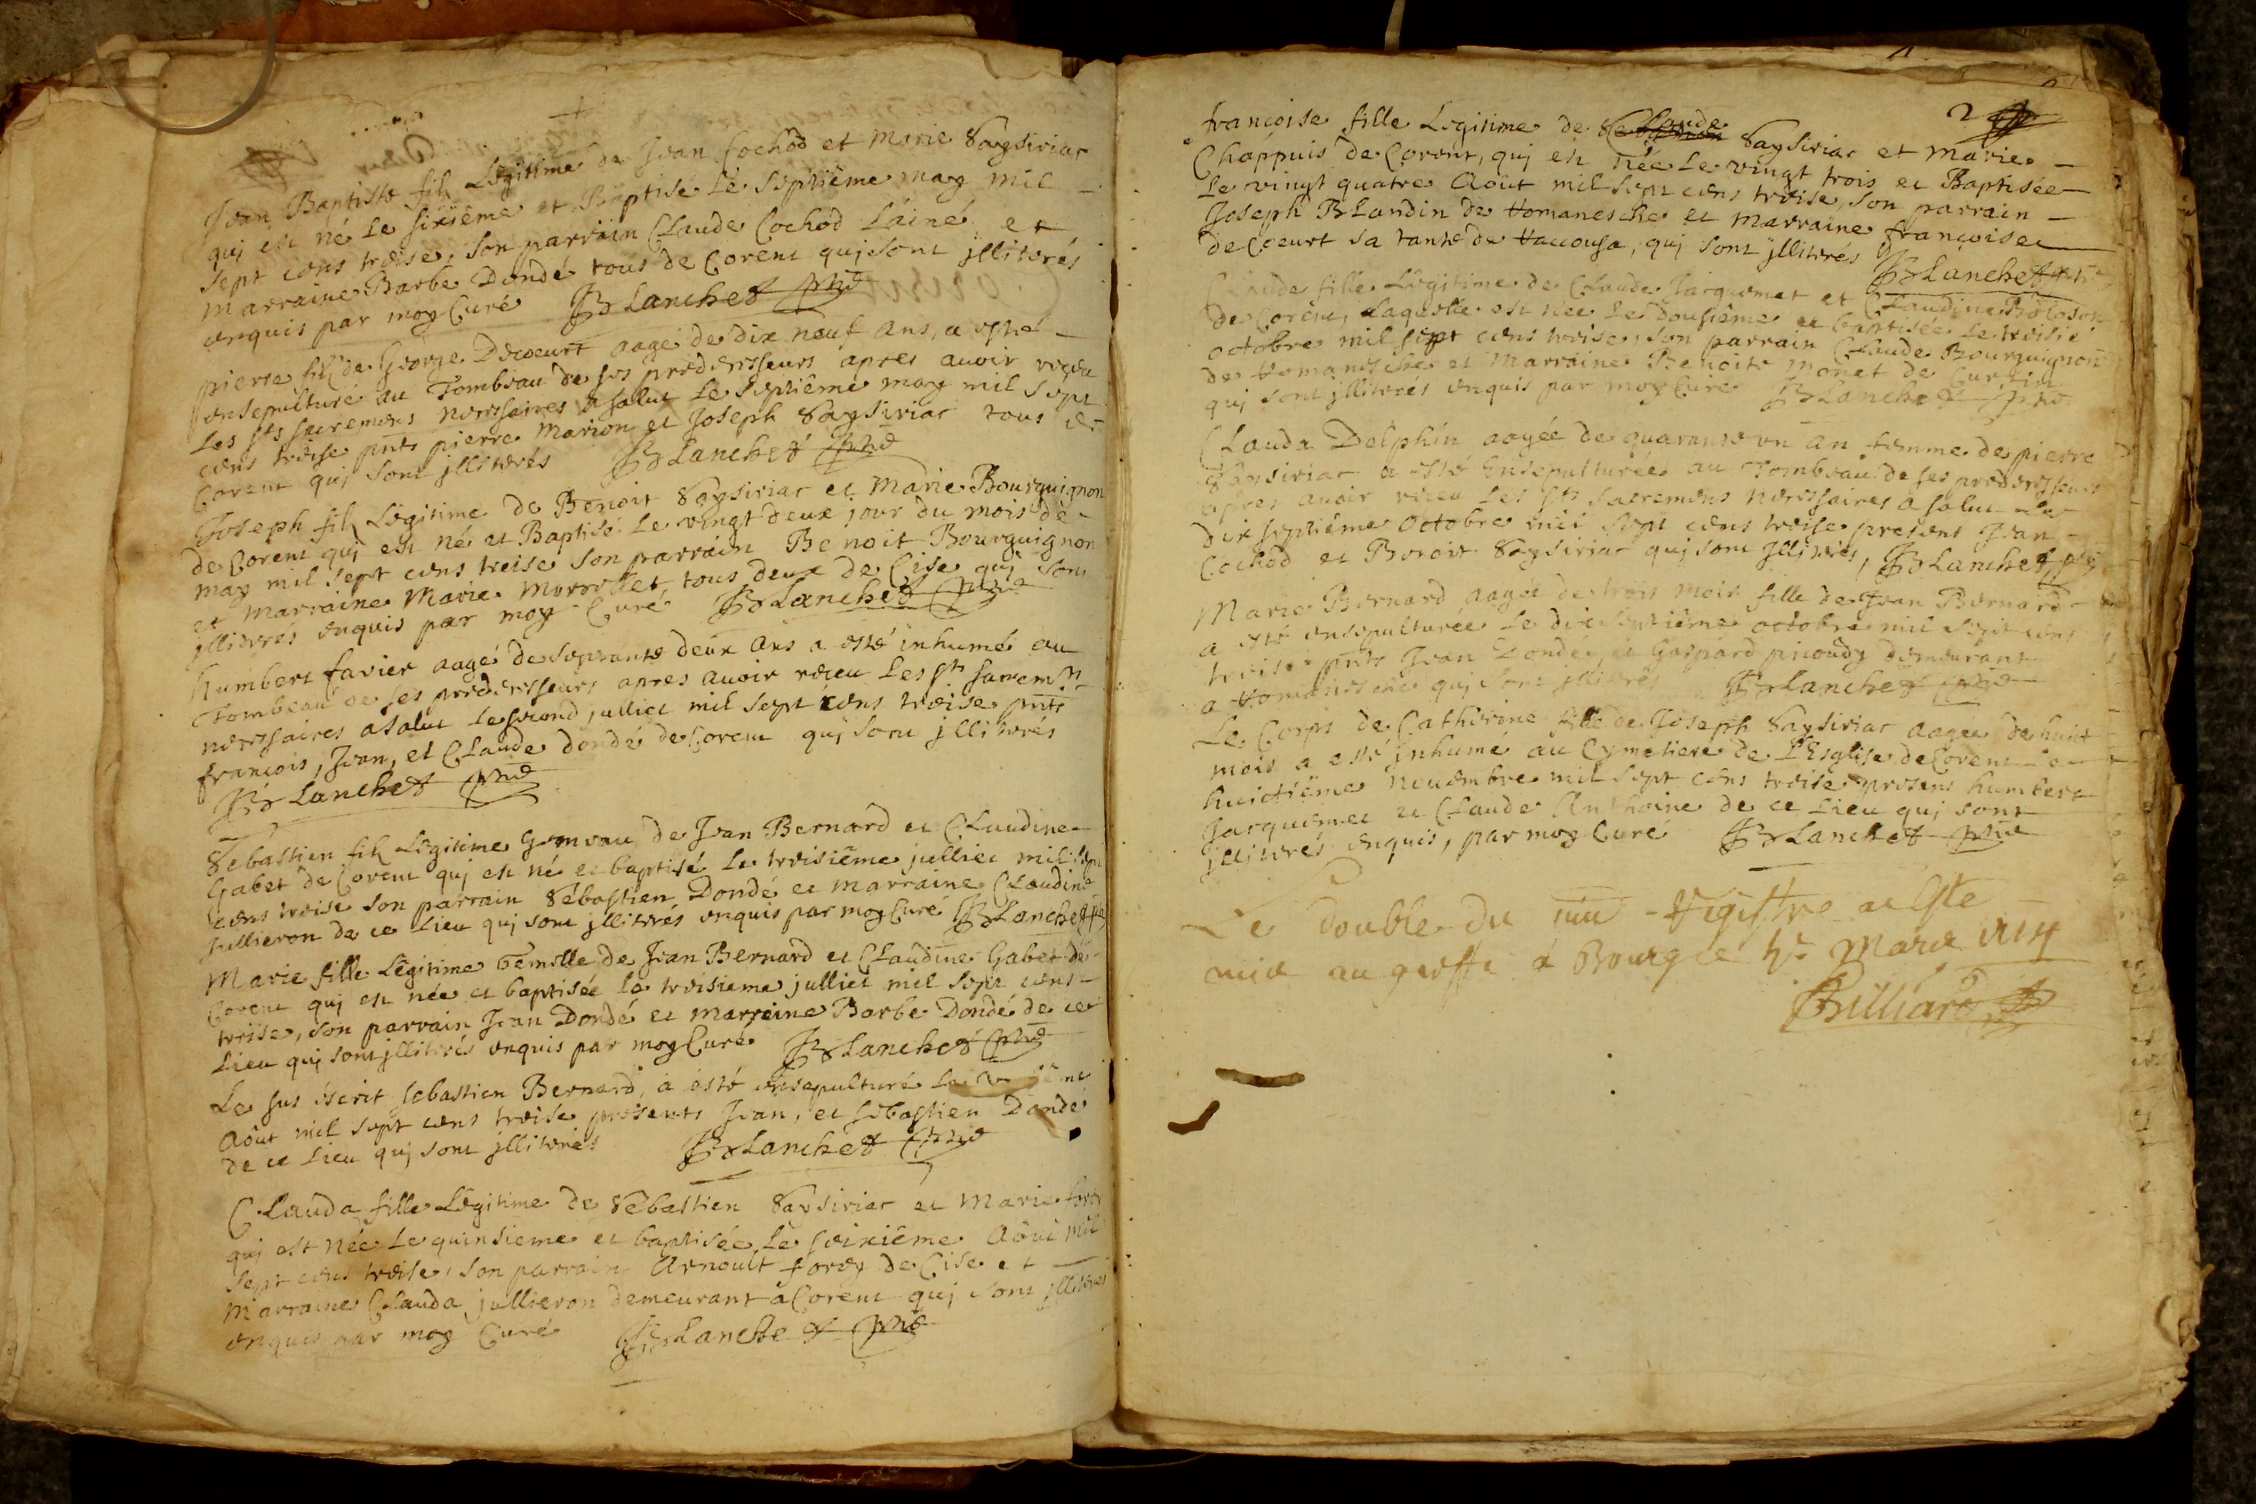 Jean Baptiste fils Légitime de Jean Cochod et Marie Saysiriac
qui est né le sixième et Baptisé le septième may mil
sept cens treise, son parrain Claude Cochod l'ainé, et
Marraine Barbe Dondé tous de Corent qui sont jlliterés
enquis par moy Curé JB Lanchet
pierre fils de George Decoeurt aagé de dix neuf ans, a este
ensepulturé au Tombeau de ses predecesseurs apres avoir receu
Les sts sacremens necessaires a salut le septième may mil sept
cens treise pnts pierre Marion et Joseph Saysiriac tous de
Corent qui sont jlliterés JB Lanchet
Joseph fils Légitime de Benoit Saysiriac et Marie Bourguignon
de Corent qui est né et Baptisé le vingt deux jour du mois de
may mil sept cens treise son parrain Benoit Bourguignon
et Marraine Marie tous deux de Cise qui sont
jlliterés enquis par moy Curé JB Lanchet
humbert favier aagé de septante deux ans a esté inhumé au
Tombeau de ses predecesseurs apres avoir receu les sts
necessaires a salut le second julliet mil sept cens treise pnts
françois, Jean, et Claude dondé de Corent qui sont jlliterés
JB Lanchet
Sebastien fils Légitime Gemeau de Jean Bernard et Claudine
Gabet de Corent qui est né et baptisé le troisième julliet mil sept
cens treise son parrain Sébastien Dondé et marraine Claudine
Jullieron de ce Lieu qui sont jlliterés enquis par moy Curé JB Lanchet
Marie fille Légitime Gemelle de Jean Bernard et Claudine Gabet de
Corent qui est née et baptisée le troisieme julliet mil sept cens
treise, son parrain Jean Dondé et Marreine Barbe Dondé de ce
Lieu qui sont jlliterés enquis par moy Curé JB Lanchet
Le sus éscrit sebastien Bernard, a ésté ensepulturé le
Aôut mil sept cens treise présents Jean, et sébastien Dondé
de ce Lieu qui sont jlliterés JB Lanchet
Clauda fille Légitime de Sébastien Saysiriac et Marie forey
qui est née le quinsieme et baptisée le seixième Aôut mil
sept cens treise, son parrain Arnoult forey de Cise et
Marraine Clauda jullieron demeurant à Corent qui sont jlliterés
enquis par moy Curé JB Lanchet
2
françoise fille Légitime de Claude Saysiriac et Marie
Chappuis de Corent, qui est née le vingt trois et Baptisée
Le vingt quatre Aôut mil sept cens treise, son parrain
Joseph Blandin de Homanesche et Marraine françoise
de Coeurt sa tante de, qui sont jlliterés
JB Lanchet
Claude fille Légitime de Claude Jarquemet et Claudine
de Corent, Laquelle est née le dousième et baptisée le
octobre mil sept cens treise, son parrain Claude Bourguignon
de Homanesche et Marraine Benoite Monet de
qui sont jlliterés enquis par moy Curé JB Lanchet
Clauda Delphin aagée de quarante un an femme de pierre
Sansiriac a esté Ensepulturée au Tombeau de ses predecesseurs
apres avoir receu les sts sacremens necessaires a salut Le
dix septième octobre mil sept cens treise presens Jean
Cochod et Benoit Saysiriac qui sont jlliterés, JB Lanchet
Marie Bernard aagée de trois mois fille de Jean Bernard
a esté ensepulturée le dix septième octobre mil sept cens
treise pnts Jean Dondé, et Gaspard demeurant
a Homanesche qui sont jlliterés JB Lanchet
Le Corps de Catherine fille de Joseph Saysiriac aagée de huit
mois a esté jnhumé au Cymetiere de L'Esglise de Corent le
huictième Novembre mil sept cens treise presens humbert
Jarquemet et Claude Anthoine de ce Lieu qui sont
jlliterés enquis, par moy Curé JB Lanchet
Le double du registre a este
mis au greffe à Bourg le Mars
Billiard